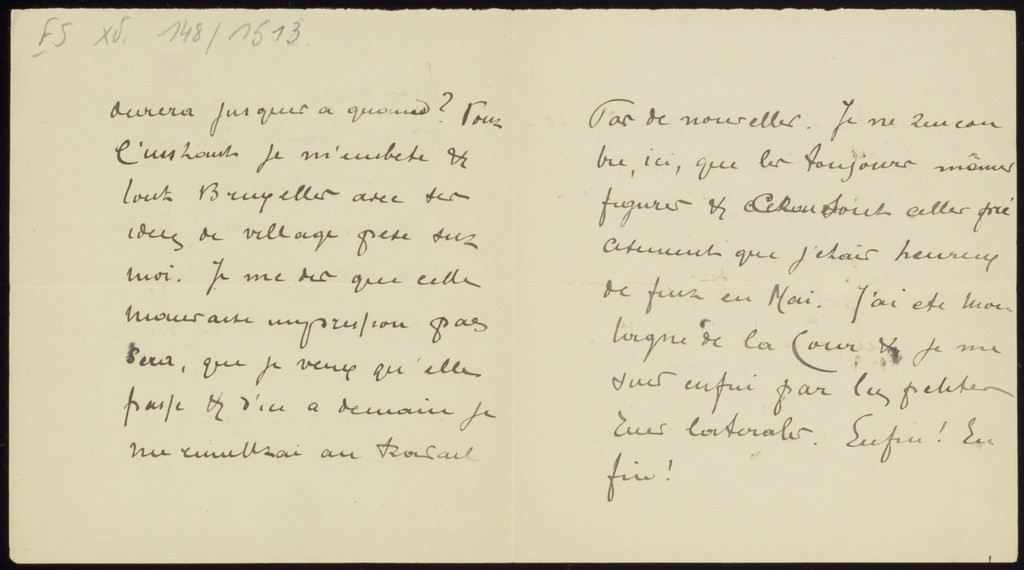 FS XV. 148/1513.
durera jusques a quand? Pour
l'instant je m'embete &
tout Bruxelles avec ses
idees de village pese sur
moi. Je me dis que cette
mauvaise impression pas
sera, que je veux qu'elle
passe & d'ici a demain je
me remettrai au travail
Pas de nouvelles. Je ne rencon
tre, ici, que les toujours mêmes
figures & sont celles pré
cisement que j'étais heureux
de fuir en Mai. J'ai ete Mon
tagne de la Cour & je me
suis enfui par les petites
rues laterales. Enfin! En
fin!